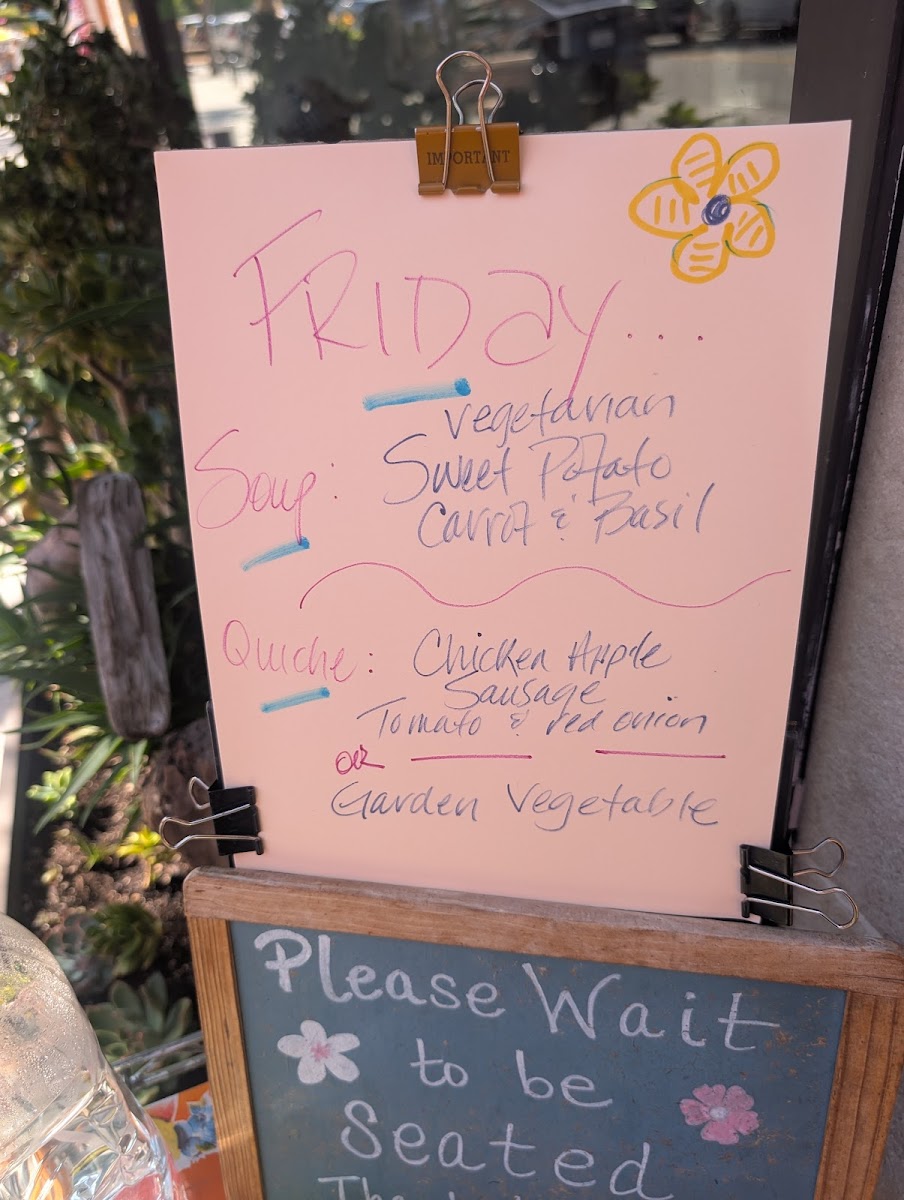 IMPORTANT
FRIDay...
vegetarian
Soup: Sweet Potato
Carrot & Basil
Quiche: Chicken Apple
Sausage
Tomato & red onion
OR
Garden Vegetable
Please Wait
to be
Seated